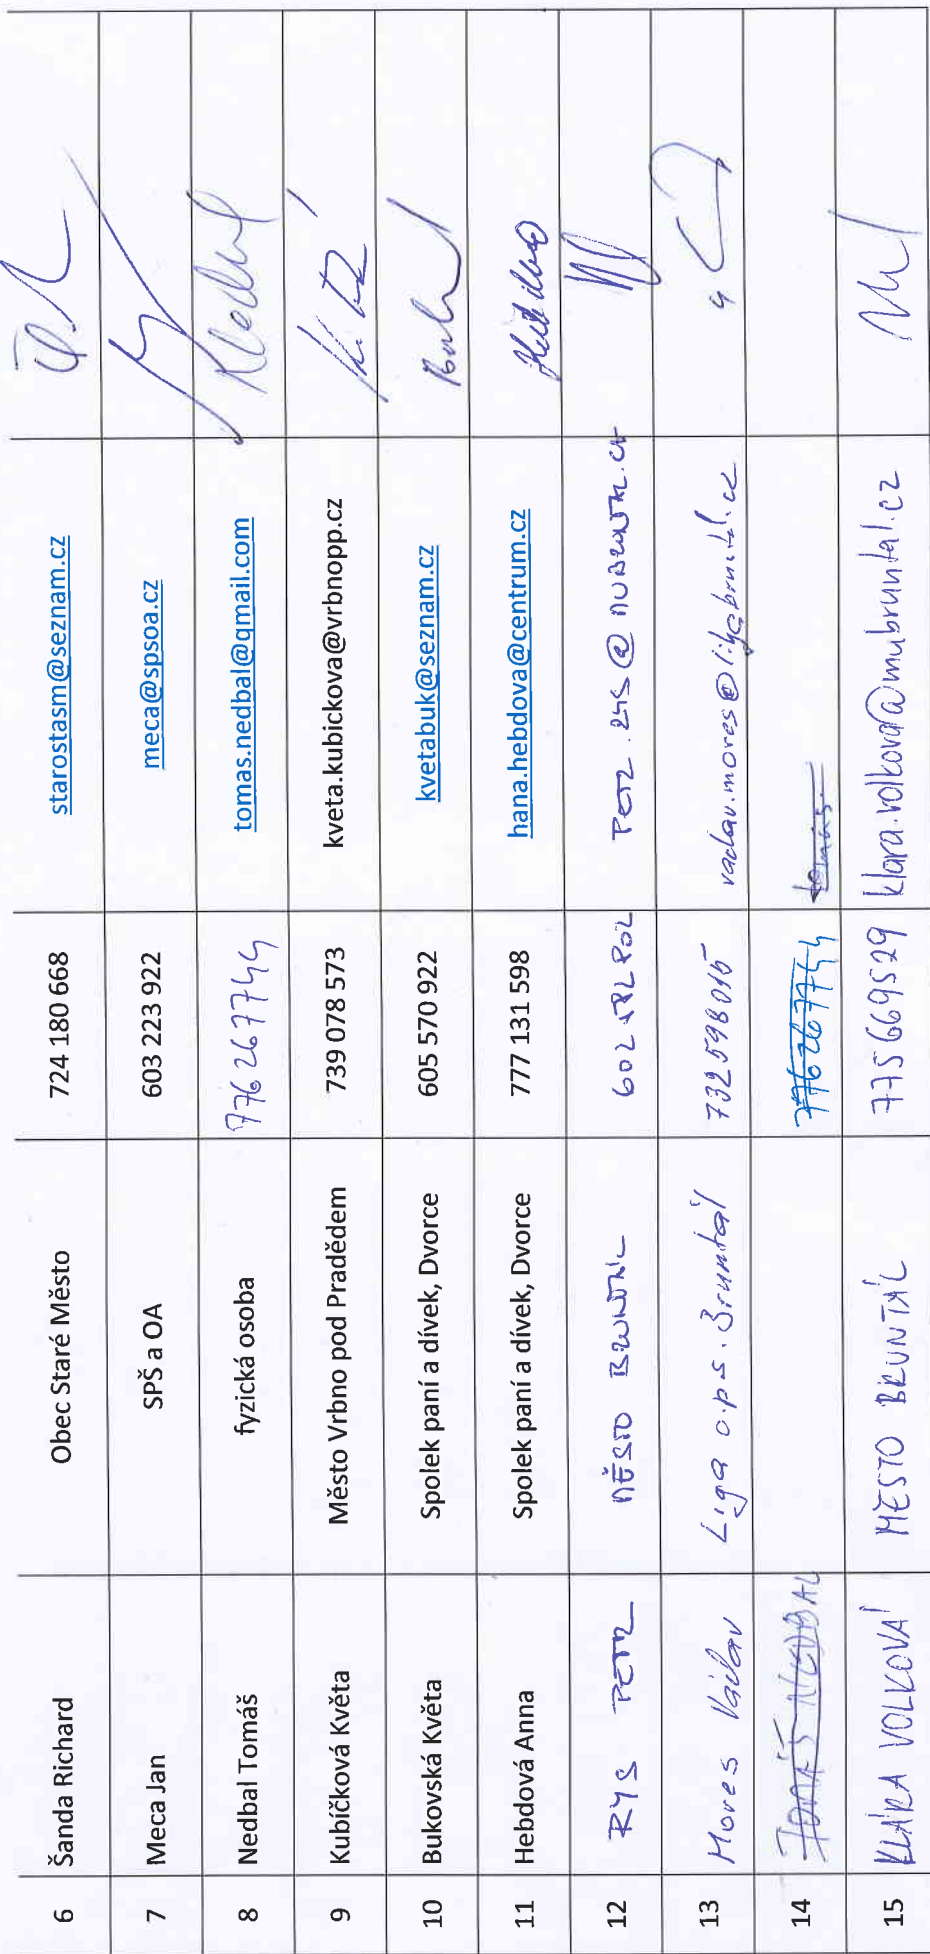 6 Šanda Richard Obec Staré Město 724 180 668 starostasm@seznam.cz
7 Meca Jan SPŠ a OA 603 223 922 meca@spsoa.cz
8 Nedbal Tomáš fyzická osoba 776267744 tomas.nedbal@qmail.com
9 Kubíčková Květa Město Vrbno pod Pradědem 739 078 573 kveta.kubickova@vrbnopp.cz
10 Bukovská Květa Spolek paní a dívek, Dvorce 605 570 922 kvetabuk@seznam.cz
11 Hebdová Anna Spolek paní a dívek, Dvorce 777 131 598 hana.hebdova@centrum.cz
12 RYS PETR MĚSTO BRUNTÁL
13 Mores Václav Liga o.p.s. Bruntál 732598015 vaclav.mores@ligabruntal.cz
14 TOMÁŠ NEDBAL 776267744 tomas.
15 KLÁRA VOLKOVÁ MĚSTO BRUNTÁL 775669529 klara.volkova@mubruntal.cz